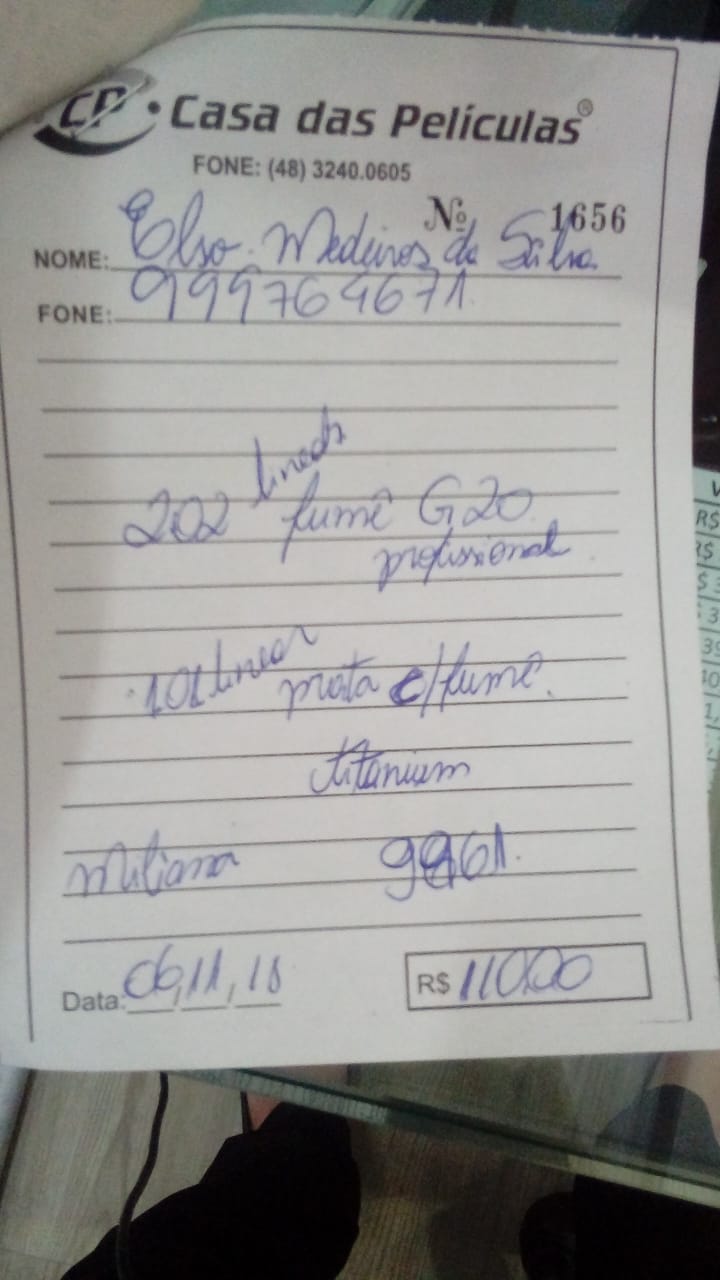 CP Casa das Películas®
FONE: (48) 3240.0605
Nº 1656
NOME: Elso Medeiros da Silva
FONE: 999769671
linear
202 fumê G20
profissional
101 linear prata c/fumê.
titanium
9961.
Data: 06,11,18 R$ 110,00
R$
R$